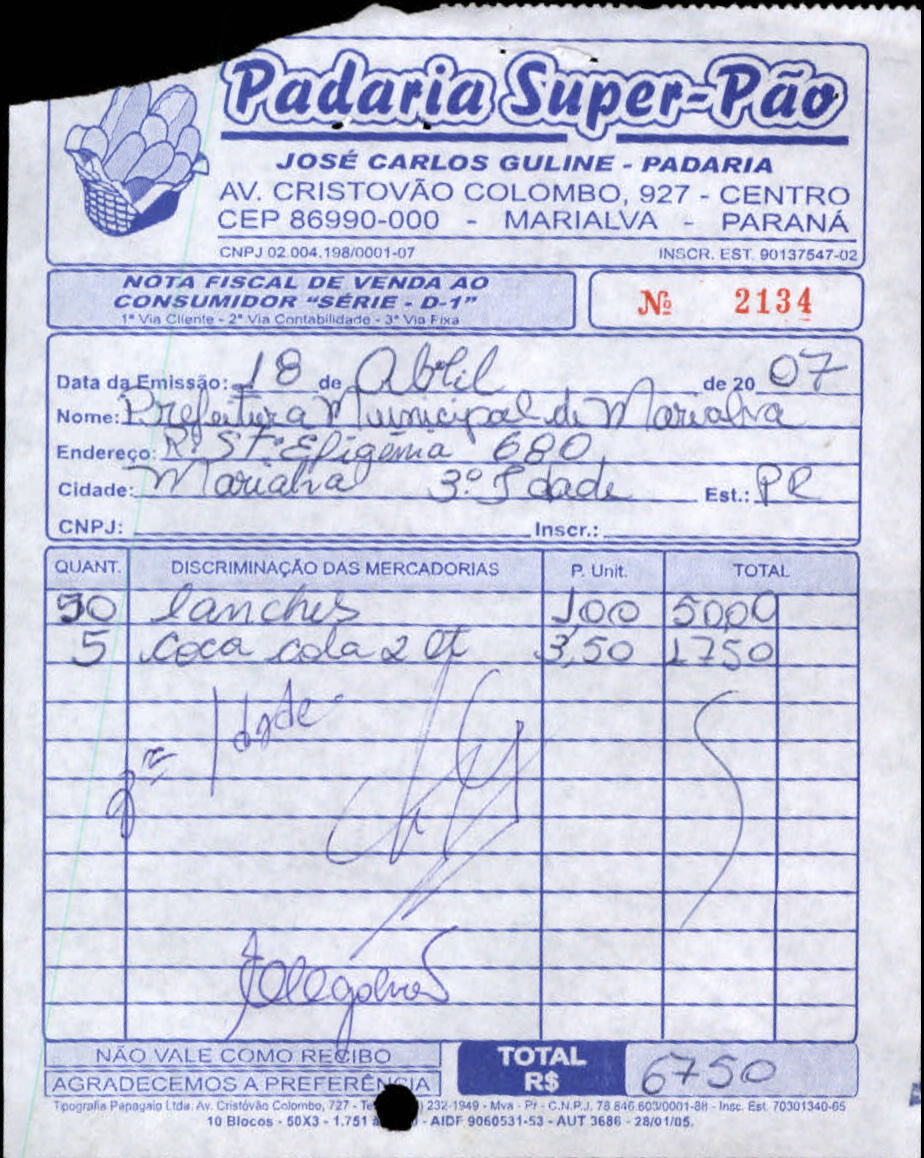 Padaria Super-Pão
JOSÉ CARLOS GULINE - PADARIA
AV. CRISTOVÃO COLOMBO, 927 - CENTRO
CEP 86990-000 - MARIALVA - PARANÁ
CNPJ 02.004.198/0001-07 INSCR. EST. 90137547-02
NOTA FISCAL DE VENDA AO
CONSUMIDOR "SÉRIE - D-1"
1ª Via Cliente - 2ª Via Contabilidade - 3ª Via Fixa
Nº 2134
Data da Emissão: 18 de Abril de 20 07
Nome: Prefeitura Municipal de Marialva
Endereço: Rª Stª Efigênia 680
Cidade: Marialva 3º Idade Est.: PR
CNPJ: Inscr.:
QUANT. DISCRIMINAÇÃO DAS MERCADORIAS P. Unit. TOTAL
50 lanches 1,00 5000
5 coca cola 2 lt 3,50 1750
Idade
NÃO VALE COMO RECIBO
AGRADECEMOS A PREFERÊNCIA
TOTAL R$ 6750
Tipografia Papagaio Ltda. Av. Cristóvão Colombo, 727 - 232-1949 - Mva - Pr - C.N.P.J. 78.846.603/0001-88 - Insc. Est. 70301340-65
10 Blocos - 50X3 - 1.751 - AIDF 9060531-53 - AUT 3686 - 28/01/05.